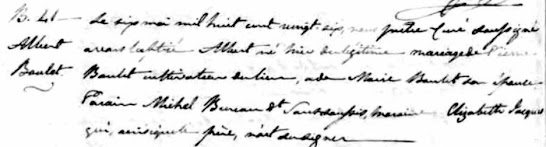 B. 41 — Le six mai mil huit cent vingt-six, nous prêtre Curé soussigné
Albert avons baptisé Albert né hier du légitime mariage de Pierre
Baulet Baulet cultivateur du lieu, et de Marie Baulet son épouse
Parain Michel Bureau dt Sanssoucis, maraine Elizabeth Jacques
qui, ainsi que le père, n'ont su signer